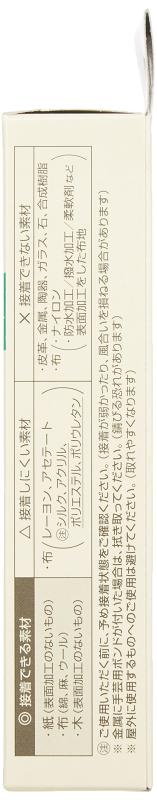 ◎ 接着できる素材
・紙(表面加工のないもの)
・布(綿、麻、ウール)
・木(表面加工のないもの)
△ 接着しにくい素材
・布(レーヨン、アセテート
㊟シルク、アクリル、
ポリエステル、ポリウレタン)
× 接着できない素材
・皮革、金属、陶器、ガラス、石、合成樹脂
・布(・ナイロン
・防水加工/撥水加工/柔軟剤など
表面加工をした布地)
㊟ご使用いただく前に、予め接着状態をご確認ください。(接着が弱かったり、風合いを損ねる場合があります)
※金属に手芸用ボンドが付いた場合は、拭き取ってください。(錆びる恐れがあります)
※屋外に使用するものへのご使用は避けてください。(取れやすくなります)